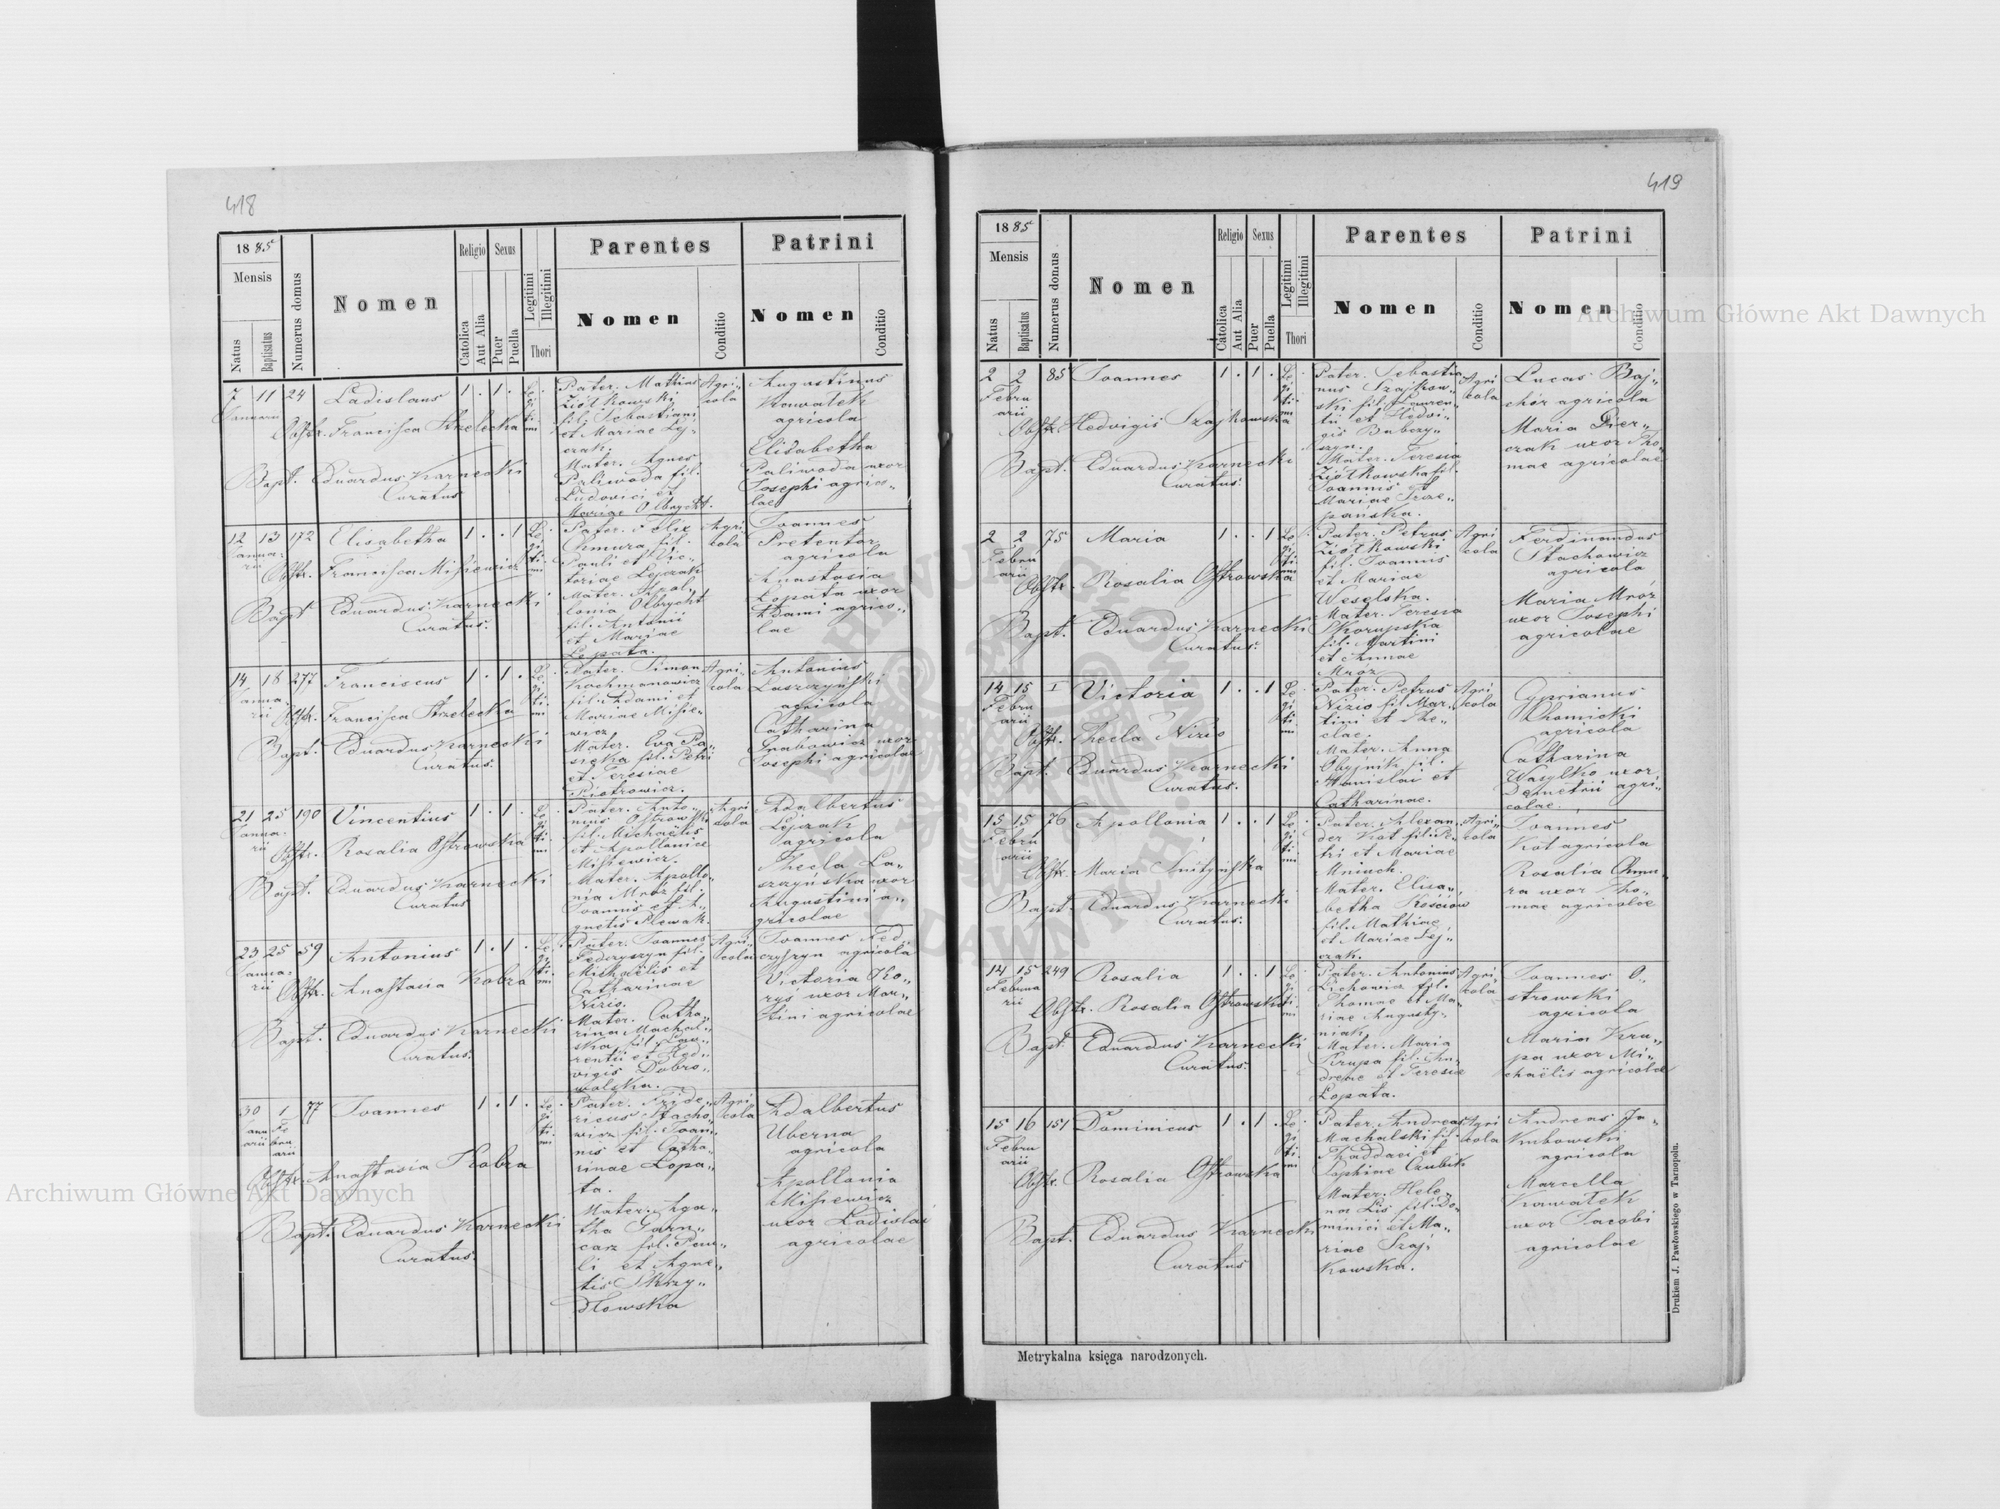 418
1885
Mensis
Natus
Baptisatus
Numerus domus
Nomen
Religio
Catholica
Aut Alia
Sexus
Puer
Puella
Legitimi
Illegitimi
Thori
Parentes
Nomen
Conditio
Patrini
Nomen
Conditio
7 11 24 Ladislaus 1 . 1 .
Januarii
Obstr. Francisca Strzelecka
Bapt. Eduardus Karnecki
Curatus
Le
gi
ti
mi
Pater. Mathias
Ziółkowski
fil. Sebastiani
et Mariae Lej-
czak.
Mater. Agnes
Paliwoda fil.
Ludovici et
Mariae Olbrycht.
Agri-
cola
Augustinus
Kowalek
agricola
Elisabetha
Paliwoda uxor
Josephi agrico-
lae
12 13 172 Elisabetha 1 . . 1
Janua-
rii
Obstr. Francisca Misiewicz
Bapt Eduardus Karnecki
Curatus.
Le
gi
ti
mi
Pater. Felix
Chmura fil.
Pauli et Vic-
toriae Lejczak
Mater. Apol-
lonia Olbrycht
fil. Antonii
et Mariae
Lopata.
Agri
cola
Joannes
Pretentor
agricola
Anastasia
Lopata uxor
Adami agrico-
lae
14 18 277 Franciscus 1 . 1 .
Janua-
rii
Obstr. Francisca Strzelecka
Bapt. Eduardus Karnecki
Curatus.
Le
gi
ti
mi
Pater. Simon
Kochmanowicz
fil. Adami et
Mariae Misie-
wicz
Mater. Eva Pa-
sięka fil. Petri
et Teresiae
Piotrowicz.
Agri-
cola
Antonius
Laszczyński
agricola
Catharina
Grabowicz uxor
Josephi agricolae
21 25 190 Vincentius 1 . 1 .
Janua-
rii
Obstr. Rosalia Ostrowska
Bapt. Eduardus Karnecki
Curatus
Le
gi
ti
mi
Pater. Anto-
nius Ostrowski
fil. Michaëlis
et Apolloniae
Misiewicz.
Mater. Apollo-
nia Mróz fil.
Joannis et A-
gnetis Plewak.
Agri
cola
Adalbertus
Lejczak
agricola
Thecla La-
szczyńska uxor
Augustini a-
gricolae
23 25 59 Antonius 1 . 1 .
Janua-
rii
Obstr. Anastasia Kobza
Bapt. Eduardus Karnecki
Curatus.
Le
gi
ti
mi
Pater. Joannes
Fedczyszyn fil.
Michaëlis et
Catharinae
Nizio.
Mater. Catha-
rina Machal-
ska fil. Lau-
rentii et Hed-
vigis Dobro-
wolska.
Agri-
cola
Joannes Fed-
czyszyn agricola
Victoria Cho-
rys uxor Mar-
tini agricolae
30 1 77 Joannes 1 . 1 .
Janu
arii
Fe
bru
arii
Obstr. Anastasia Kobza
Bapt. Eduardus Karnecki
Curatus.
Le
gi
ti
mi
Pater. Fride-
ricus Stacho-
wicz fil. Joan-
nis et Catha-
rinae Lopa-
ta.
Mater. Aga-
tha Garn-
carz fil. Pau-
li et Agne-
tis Skrzy-
dlowska
Agri
cola
Adalbertus
Uberna
agricola
Apollonia
Misiewicz
uxor Ladislai
agricolae
419
1885
Mensis
Natus
Baptisatus
Numerus domus
Nomen
Religio
Catolica
Aut Alia
Sexus
Puer
Puella
Legitimi
Illegitimi
Thori
Parentes
Nomen
Conditio
Patrini
Nomen
Conditio
2 2 85 Joannes 1 . 1 .
Febru
arii
Obstr. Hedvigis Szajkowska
Bapt. Eduardus Karnecki
Curatus.
Le
gi
ti
mi
Pater. Sebastia
nus Szajkow-
ski fil. Lauren-
tii et Hedvi-
gis Babczy-
szyn.
Mater. Teresia
Ziółkowska fil.
Joannis et
Mariae Szcze-
pańska.
Agri
cola
Lucas Baj-
chór agricola
Maria Pier-
czak uxor Tho-
mae agricolae
2 2 75 Maria 1 . . 1
Febru
arii
Obstr. Rosalia Ostrowska
Bapt. Eduardus Karnecki
Curatus.
Le
gi
ti
mi
Pater. Petrus
Ziółkowski
fil. Joannis
et Mariae
Weselska.
Mater. Teresia
Skorupska
fil. Martini
et Annae
Mróz
Agri
cola
Ferdinandus
Stachowicz
agricola
Maria Mróz
uxor Josephi
agricolae
14 15 1 Victoria 1 . . 1
Febru
arii
Obstr. Thecla Nizio
Bapt. Eduardus Karnecki
Curatus.
Le
gi
ti
mi
Pater. Petrus
Nizio fil. Mar-
tini et The-
clae.
Mater. Anna
Obijnik fil.
Stanislai et
Catharinae.
Agri
cola
Cyprianus
Chomicki
agricola
Catharina
Wasylko uxor
Demetrii agri-
colae.
15 15 76 Apollonia 1 . . 1
Febru
arii
Obstr. Maria
Bapt. Eduardus Karnecki
Curatus.
Le
gi
ti
mi
Pater. Alexan-
der Kot fil. Pe-
tri et Mariae
Mniuch.
Mater. Elisa-
betha Kościów
fil. Mathiae
et Mariae Lej-
czak.
Agri-
cola
Joannes
Kot agricola
Rosalia Chmu-
ra uxor Tho-
mae agricolae
14 15 249 Rosalia 1 . . 1
Februa
rii
Obstr. Rosalia Ostrowska
Bapt. Eduardus Karnecki
Curatus.
Le
gi
ti
mi
Pater. Antonius
Lichowicz fil.
Thomae et Ma-
riae Augusty-
niak.
Mater. Maria
Krupa fil. An-
dreae et Teresiae
Lopata.
Agri
cola
Joannes O-
strowski
agricola
Maria Kru-
pa uxor Mi-
chaëlis agricolae
15 16 151 Dominicus 1 . 1 .
Febru
arii
Obstr. Rosalia Ostrowska
Bapt. Eduardus Karnecki
Curatus
Le
gi
ti
mi
Pater. Andreas
Machalski fil.
Thaddaei et
Sophiae Czubik
Mater. Hele-
na Lis fil. Do-
minici et Ma-
riae Szaj-
kowska.
Agri
cola
Andreas Ja-
kubowski
agricola
Marcella
Kowalek
uxor Jacobi
agricolae
Metrykalna księga narodzonych.
Drukiem J. Pawłowskiego w Tarnopolu.
Archiwum Główne Akt Dawnych
Archiwum Główne Akt Dawnych